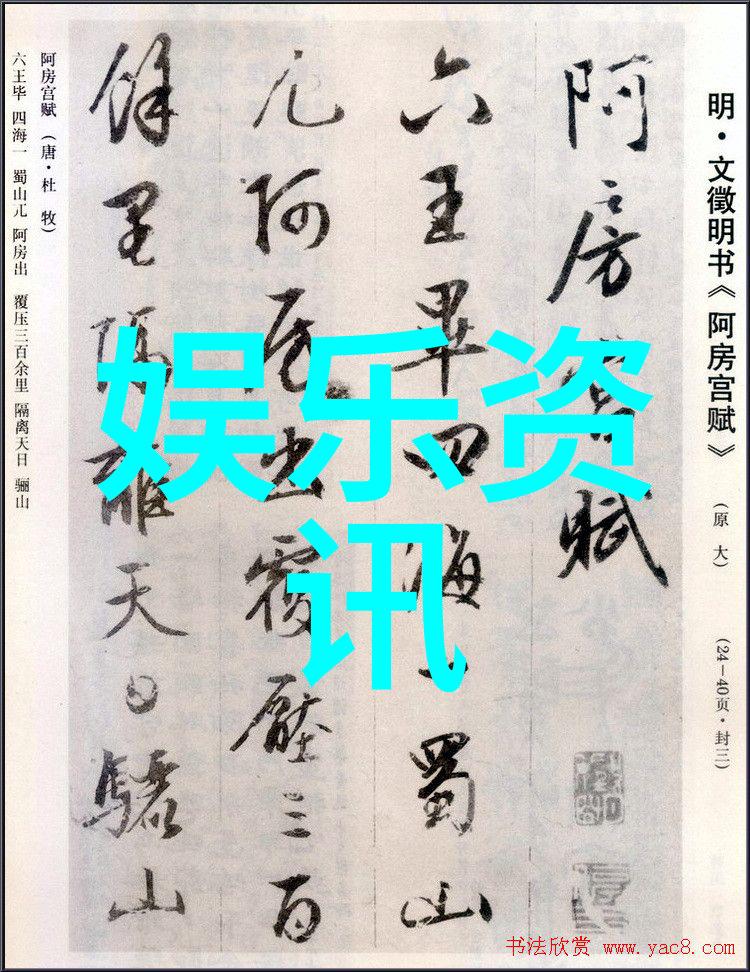 明·文徵明书《阿房宫赋》 (原大) (24-40页·封三)
阿房宫赋
六王畢四海一蜀山
兀阿房出覆壓三百
餘里隔離天日驪山
阿房宫赋(唐·杜 牧)
六王毕 四海一 蜀山兀 阿房出 覆压三百余里 隔离天日 骊山
娱乐资
讯
书法欣赏 www.yac8.com